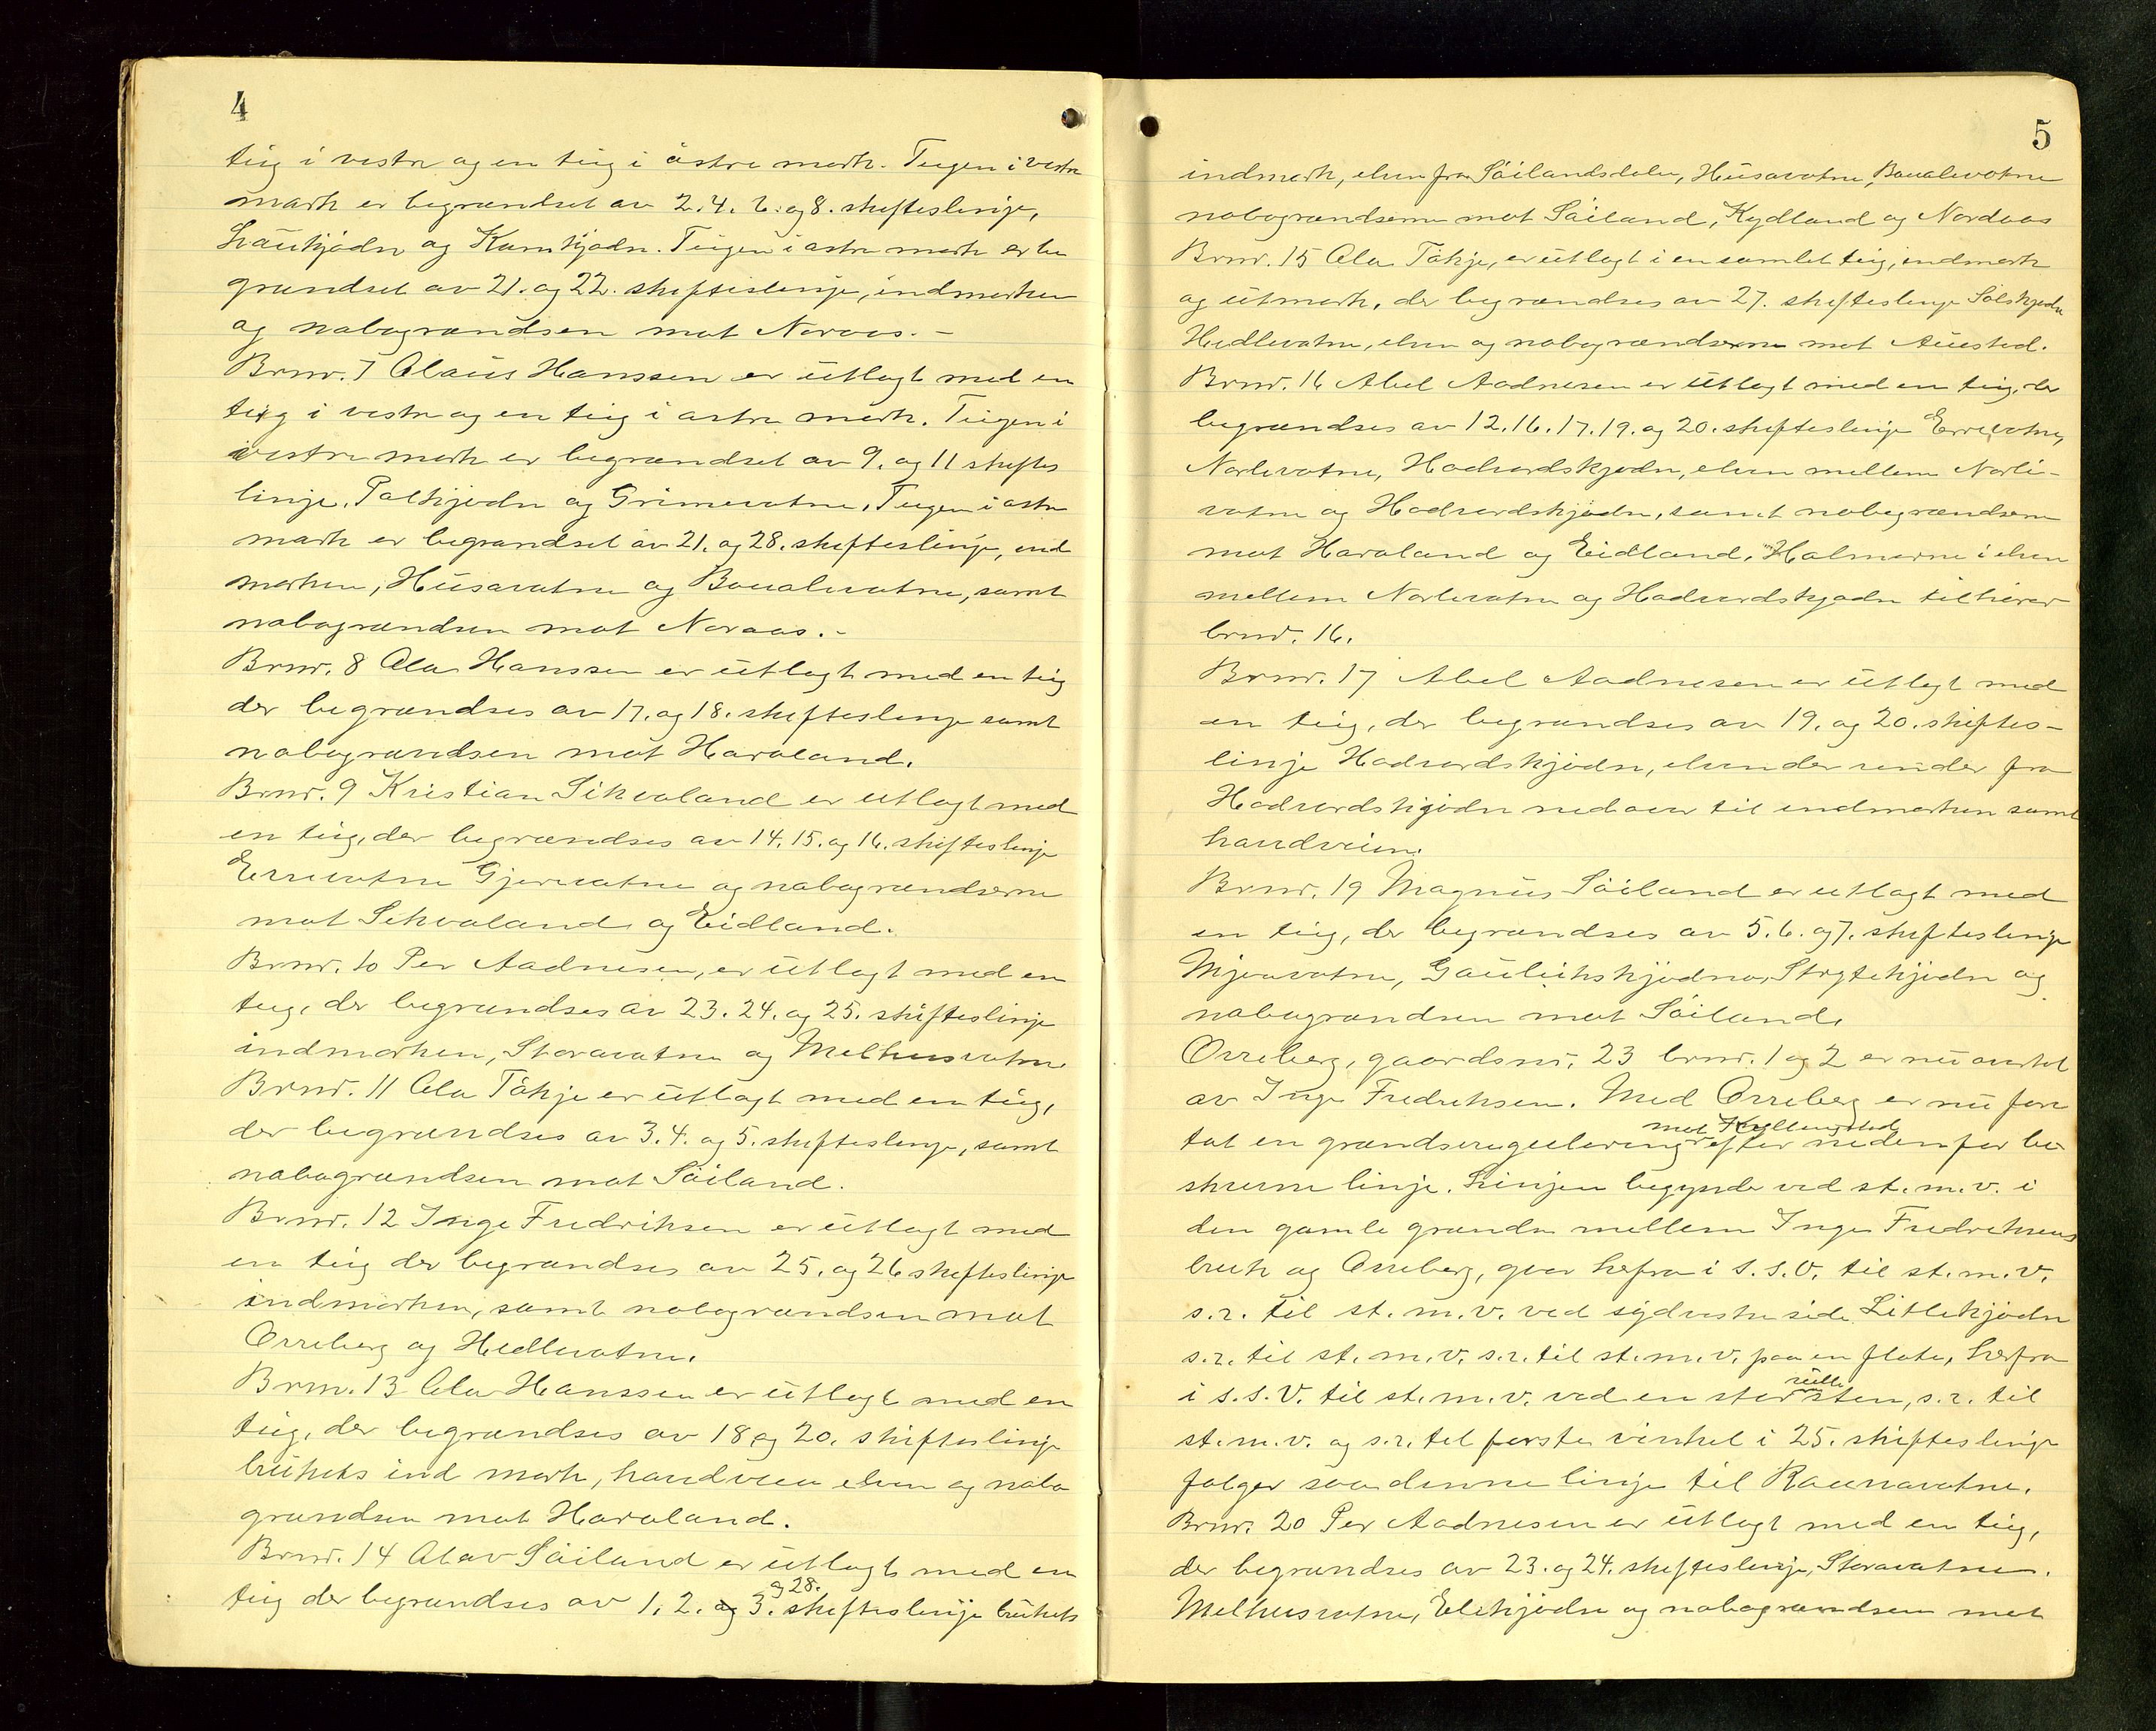 4
teig i vestre og en teig i østre mark. Teigen i vestre
mark er begrændset av 2. 4. 6. og 8. skifteslinje,
Laukjødn og Kamkjødn. Teigen i østre mark er be
grændset av 21. og 22. skifteslinje, indmarken
og nabogrændsen mot Noraas. -
Brnr. 7 Olaus Hanssen er utlagt med en
teig i vestre og en teig i østre mark. Teigen i
vestre mark er begrændset av 9. og 11 skiftes
linje, Polkjødn og Grimevatne, Teigen i østre
mark er begrændset av 21. og 28. skifteslinje, ind
marken, Husavatne og Boualevatne, samt
nabogrændsen mot Noraas. -
Brnr. 8 Ola Hanssen er utlagt med en teig
der begrændses av 17. og 18. skifteslinje samt
nabogrændsen mot Havaland.
Brnr. 9 Kristian Sikvaland er utlagt med
en teig, der begrændses av 14. 15. og 16. skifteslinje
Errevatne Gjerevatne og nabogrændserne
mot Sikvaland og Eidland.
Brnr. 10 Per Aadnesen, er utlagt med en
teig, der begrændses av 23. 24. og 25. skifteslinje
indmarken, Storavatne og Melhusvatne.
Brnr. 11 Ola Tåkje er utlagt med en teig,
der begrændses av 3. 4. og 5. skifteslinje, samt
nabogrændsen mot Søiland.
Brnr. 12 Inge Fredriksen er utlagt med
en teig der begrændses av 25. og 26 skifteslinje
indmarken, samt nabogrændsen mot
Orreberg og Hedlevatne.
Brnr. 13 Ola Hanssen er utlagt med en
teig, der begrændses av 18 og 20. skifteslinje
brukets ind mark, haudveien elven og nabo
grændsen mot Havaland.
Brnr. 14 Olav Søiland er utlagt med en
teig der begrændses av 1. 2. og 3. og 28. skifteslinje brukets
5
indmark, elven fra Søilandsdalen, Husavatne, Boualevatne
nabogrændserne mot Søiland, Kydland og Nordaas
Brnr. 15 Ola Tåkje, er utlagt i en samlet teig, indmark
og utmark, der begrændses av 27. skifteslinje Solskjødn
Hedlevatne, elven og nabogrændserne mot Auestad.
Brnr. 16 Abel Aadnesen er utlagt med en teig, der
begrændses av 12. 16. 17. 19. og 20. skifteslinje Errevatne,
Norlevatne, Hadvardskjødn, elven mellem Norle-
vatne og Hadvardskjødn, samt nabogrændsene
mot Havaland og Eidland, Holmerne i elven
mellem Norlevatne og Hadvardskjødn tilhører
brnr. 16.
Brnr. 17 Abel Aadnesen er utlagt med
en teig, der begrændses av 19. og 20. skiftes-
linje Hadvardskjødn, elven der render fra
Hadvardskjødn nedover til indmarken samt
haudveien.
Brnr. 19 Magnus Søiland er utlagt med
en teig, der begrændses av 5. 6. og 7. skifteslinje
Mjaavatne, Gauleikskjødna, Stygtekjødn og
nabogrændsen mot Søiland.
Orreberg, gaardsnr. 23 brnr. 1 og 2 er nu overtat
av Inge Fredriksen. Med Orreberg er nu fore
tat en grændseregulering mot Kyllingstad efter nedenfor be
skrevne linje. Linjen begynder ved st. m. v. i
den gamle grændse mellem Inge Fredriksens
bruk og Orreberg, gaar herfra i S. S. O. til st. m. v.
s. r. til st. m. v. ved sydvestre side Litlekjødn
s. r. til st. m. v. s. r. til st. m. v. paa en flate, herfra
i S. S. V. til st. m. v. ved en stor rulle sten, s. r. til
st. m. v. og s. r. til første vinkel i 25. skifteslinje
følger saa denne linje til Raunavatne.
Brnr. 20 Per Aadnesen er utlagt med en teig,
der begrændses av 23. og 24. skifteslinje, Storavatne.
Melhusvatne, Elekjødn og nabogrændsen mot